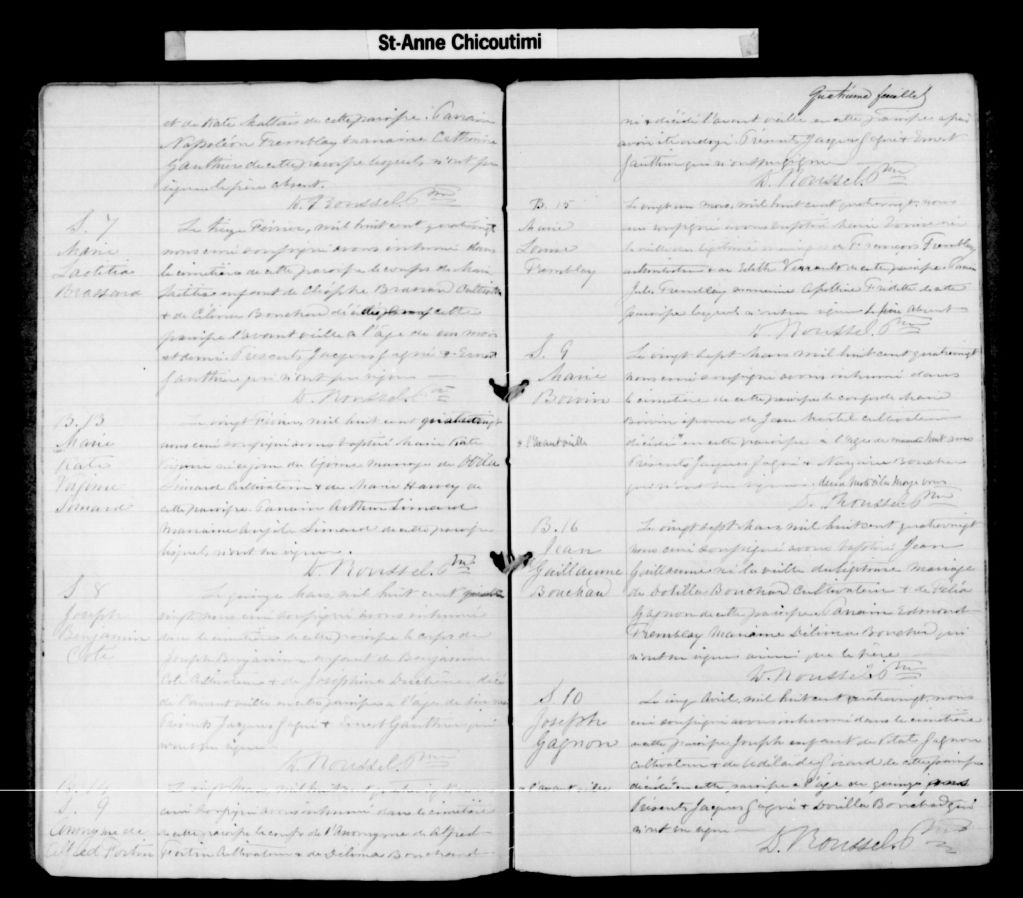 St-Anne Chicoutimi
et de Kate Maltais de cette paroisse. Parrain
Napoléon Tremblay marraine Catherine
Gauthier de cette paroisse lesquels n'ont pu
signer le père absent.
D. Roussel. Ptre
S. 7
Marie
Laetitia
Brassard
Le Février, mil huit cent quatrevingt
nous curé soussigné avons inhumé dans
le cimetière de cette paroisse le corps de Marie
Laetitia enfant de Cléophe Brassard Cultivateur
& de Bouchard décédée cette
paroisse l'avant veille à l'âge de un mois
et demi. Présents Jacques Gagné & Ernest
Gauthier qui n'ont pu signer
D. Roussel. Ptre
B. 13
Marie
Kate
Simard
Le vingt Février, mil huit cent quatrevingt
nous curé soussigné avons baptisé Marie Kate
née ce jour du légitime mariage de
Simard Cultivateur & de Marie Harvey de
cette paroisse Parrain Arthur Simard
Marraine Angèle Simard de cette paroisse
lesquels n'ont su signer.
D. Roussel. Ptre
S. 8
Joseph
Benjamin
Coté
Le quinze Mars, mil huit cent quatre
vingt nous curé soussigné avons inhumé
dans le cimetière de cette paroisse le corps de
Joseph Benjamin enfant de Benjamin
Coté Cultivateur & de Joséphine Duchène décédé
de l'avant veille en cette paroisse à l'âge de
Présents Jacques Gagné & Ernest Gauthier qui
n'ont su signer
D. Roussel. Ptre
B. 14
S. 9
Anonyme de
Alfred Fortin
Le vingt Mars, mil huit cent quatrevingt nous
curé soussigné avons inhumé dans le cimetière
de cette paroisse le corps de l'Anonyme de Alfred
Fortin Cultivateur & de Délima Bouchard
Quatrième feuillet
né & décédé l'avant veille en cette paroisse après
avoir été ondoyé. Présents Jacques Gagné & Ernest
Gauthier qui n'ont su signer
D. Roussel. Ptre
B. 15
Marie
Tremblay
Le vingt un Mars, mil huit cent quatrevingt, nous
curé soussigné avons baptisé Marie née
la veille du légitime mariage de François Tremblay
& de Edith de cette paroisse Parrain
Jules Tremblay marraine Apolline Fradette de cette
paroisse lesquels n'ont su signer le père absent
D. Roussel. Ptre
S. 9
Marie
Boivin
Le vingt sept Mars mil huit cent quatrevingt
nous curé soussigné avons inhumé dans
le cimetière de cette paroisse le corps de Marie
Boivin épouse de Jean Martel cultivateur
décédée en cette paroisse à l'âge de huit ans
x l'avant veille
Présents Jacques Gagné & Nazaire Boucher
qui n'ont su signer. deux mots à la marge bons
D. Roussel. Ptre
B. 16
Jean
Guillaume
Bouchard
Le vingt sept Mars mil huit cent quatrevingt
nous curé soussigné avons baptisé Jean
Guillaume né la veille du légitime mariage
de Dorilla Bouchard Cultivateur & de Délia
Gagnon de cette paroisse. Parrain Edmond
Tremblay Marraine Délima Bouchard qui
n'ont su signer ainsi que le père
D. Roussel. Ptre
S. 10
Joseph
Gagnon
Le cinq Avril, mil huit cent quatrevingt, nous
curé soussigné avons inhumé dans le cimetière
de cette paroisse Joseph enfant de Gagnon
cultivateur & de Adélaide Girard de cette paroisse
l'avant veille
décédé en cette paroisse à l'âge de quinze jours
Présents Jacques Gagné & Dorilla Bouchard qui
n'ont su signer
D. Roussel. Ptre